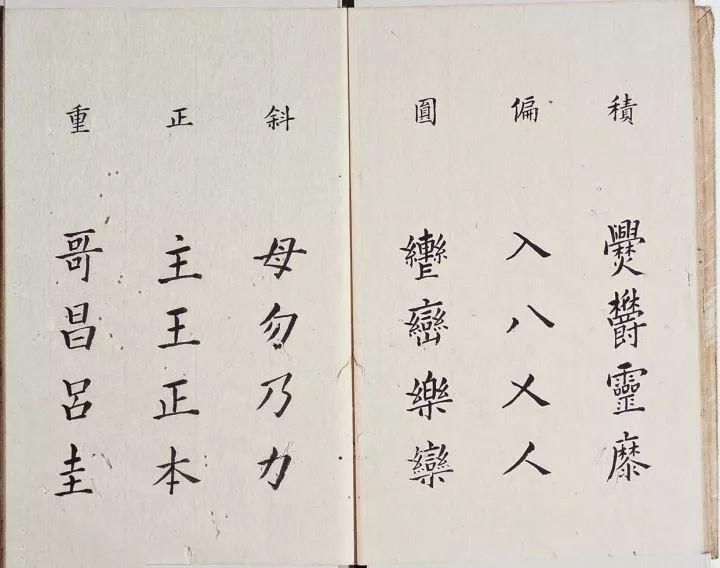 積 爨鬱靈糜
偏 入八乂人
圓 轡巒樂欒
斜 母勿乃力
正 主王正本
重 哥昌呂圭